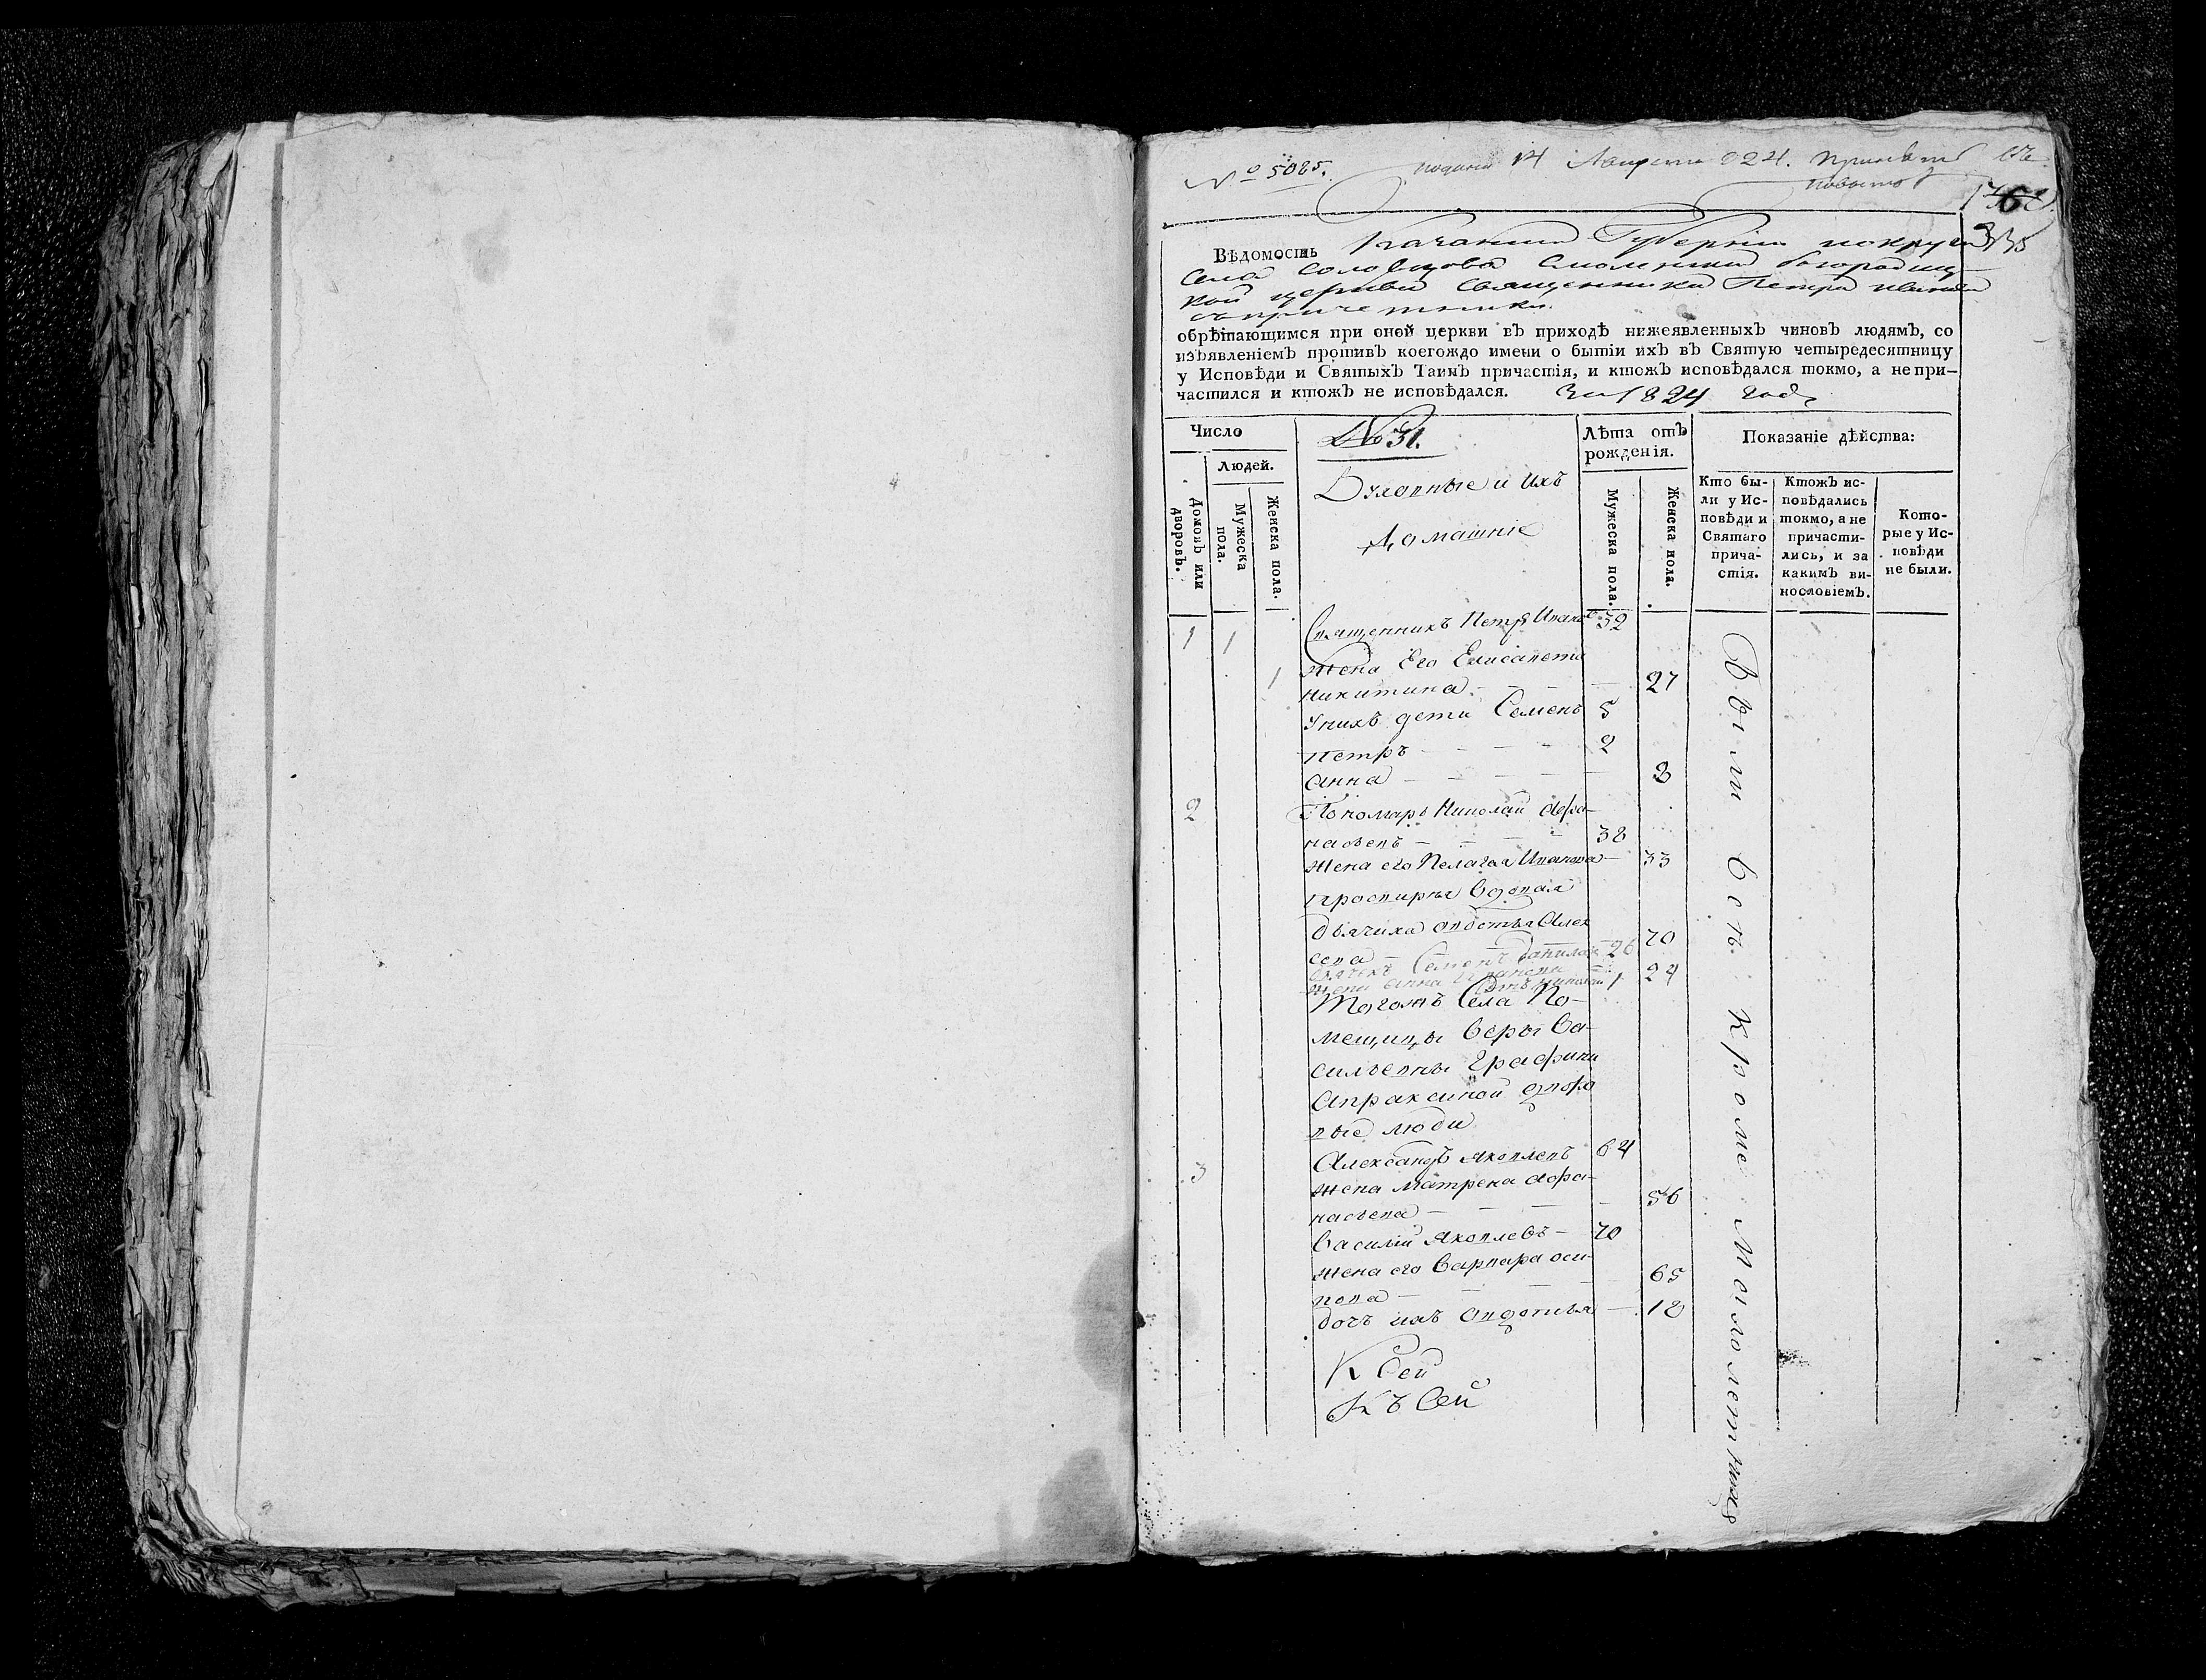 № 5085. подана 14 Августа 824.
Вѣдомость Казанской Губерніи
села Соловцова Смоленской богородиц
кой церкви Священника Петра Иванова
съ причетники
обрѣтающимся при оной церкви въ приходѣ нижеявленныхъ чиновъ людямъ, со
изъявленіемъ противъ коегождо имени о бытіи ихъ въ Святую четыредесятницу
у Исповѣди и Святыхъ Таинъ причастія, и ктожъ исповѣдался токмо, а непри-
частился и ктожъ не исповѣдался. За 1824 годъ
Число
Людей.
Домовъ или дворовъ.
Мужеска пола.
Женска пола.
№ 31.
Духовные и ихъ
домашніе
Лѣта отъ рожденія.
Мужеска пола.
Женска пола.
Показаніе дѣйства:
Кто бы-
ли у Ис-
повѣди и
Святаго
прича-
стія.
Ктожъ ис-
повѣдались
токмо, а не
причасти-
лись, и за
какимъ ви-
нословіемъ.
Кото-
рые у Ис-
повѣди
не были.
1 1 Священникъ Петръ Иванов 32
жена Его Елисавета
1 никитина 27
У нихъ дети Семенъ 5
петръ 2
анна 3
2 Пономарь Николай Афа-
насьевъ 38
жена его Пелагея Иванова 33
просвирня вдовая
дьячиха авдотья Алек
сева 70
дьячекъ Семенъ Данилов 26
жена анна 24
сынъ николай 1
Тогожъ Села По-
мещицы веры Ва-
сильевны графини
Апраксиной дворо
вые люди
3 Александръ яковлевъ 64
жена матрена афа-
насьева 56
Василій Яковлевъ 70
жена его варвара оси-
пова 65
дочь ихъ авдотья 18
К Сей
Къ Сей
Были всѣ Кроме Малолетнихъ